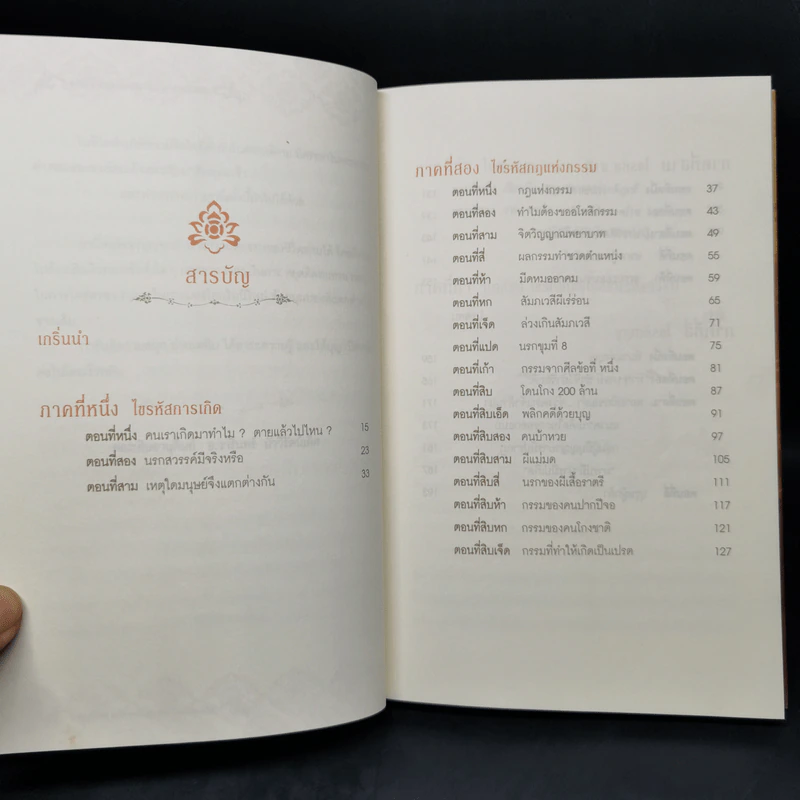 สารบัญ
เกริ่นนำ
ภาคที่หนึ่ง ไขรหัสการเกิด
ตอนที่หนึ่ง คนเราเกิดมาทำไม ? ตายแล้วไปไหน ? 15
ตอนที่สอง นรกสวรรค์มีจริงหรือ 23
ตอนที่สาม เหตุใดมนุษย์จึงแตกต่างกัน 33
ภาคที่สอง ไขรหัสกฎแห่งกรรม
ตอนที่หนึ่ง กฎแห่งกรรม 37
ตอนที่สอง ทำไมต้องขออโหสิกรรม 43
ตอนที่สาม จิตวิญญาณพยาบาท 49
ตอนที่สี่ ผลกรรมทำชวดตำแหน่ง 55
ตอนที่ห้า มีดหมออาคม 59
ตอนที่หก สัมภเวสีผีเร่ร่อน 65
ตอนที่เจ็ด ล่วงเกินสัมภเวสี 71
ตอนที่แปด นรกขุมที่ 8 75
ตอนที่เก้า กรรมจากศีลข้อที่ หนึ่ง 81
ตอนที่สิบ โดนโกง 200 ล้าน 87
ตอนที่สิบเอ็ด พลิกคดีด้วยบุญ 91
ตอนที่สิบสอง คนบ้าหวย 97
ตอนที่สิบสาม ผีแม่มด 105
ตอนที่สิบสี่ นรกของผีเสื้อราตรี 111
ตอนที่สิบห้า กรรมของคนปากปีจอ 117
ตอนที่สิบหก กรรมของคนโกงชาติ 121
ตอนที่สิบเจ็ด กรรมที่ทำให้เกิดเป็นเปรต 127